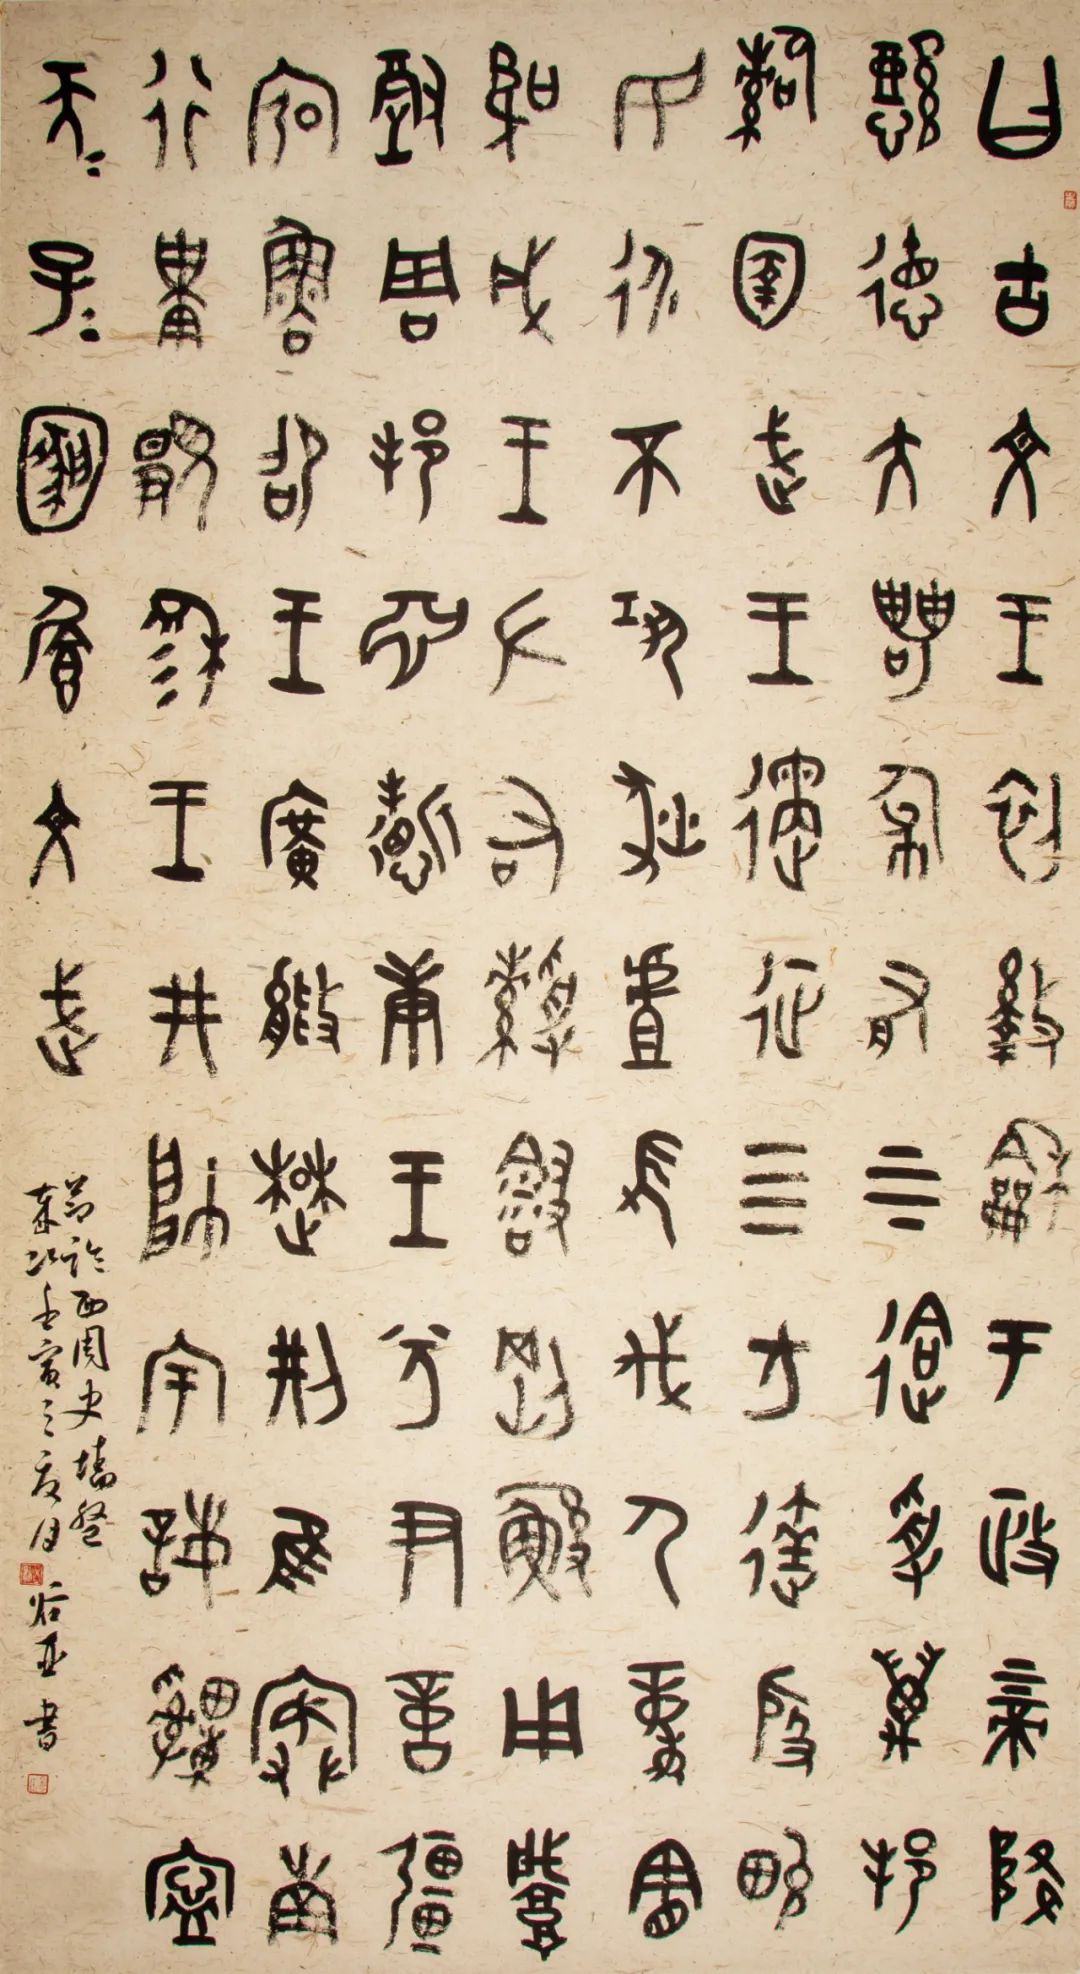 曰古文王初盭龢于政上帝降
懿德大甹匍有上下迨受萬邦
圉武王遹征四方達殷畯
民永不巩狄虘髟伐尸童憲
聖成王左右綬會剛鯀用肇
徹周邦淵哲康王兮尹億疆
宏魯邵王廣懲楚荊隹寏南
行祗顯穆王井帥宇誨申寧
天子天子文武
節臨西周史墙盤
壬寅之夏月 亚書